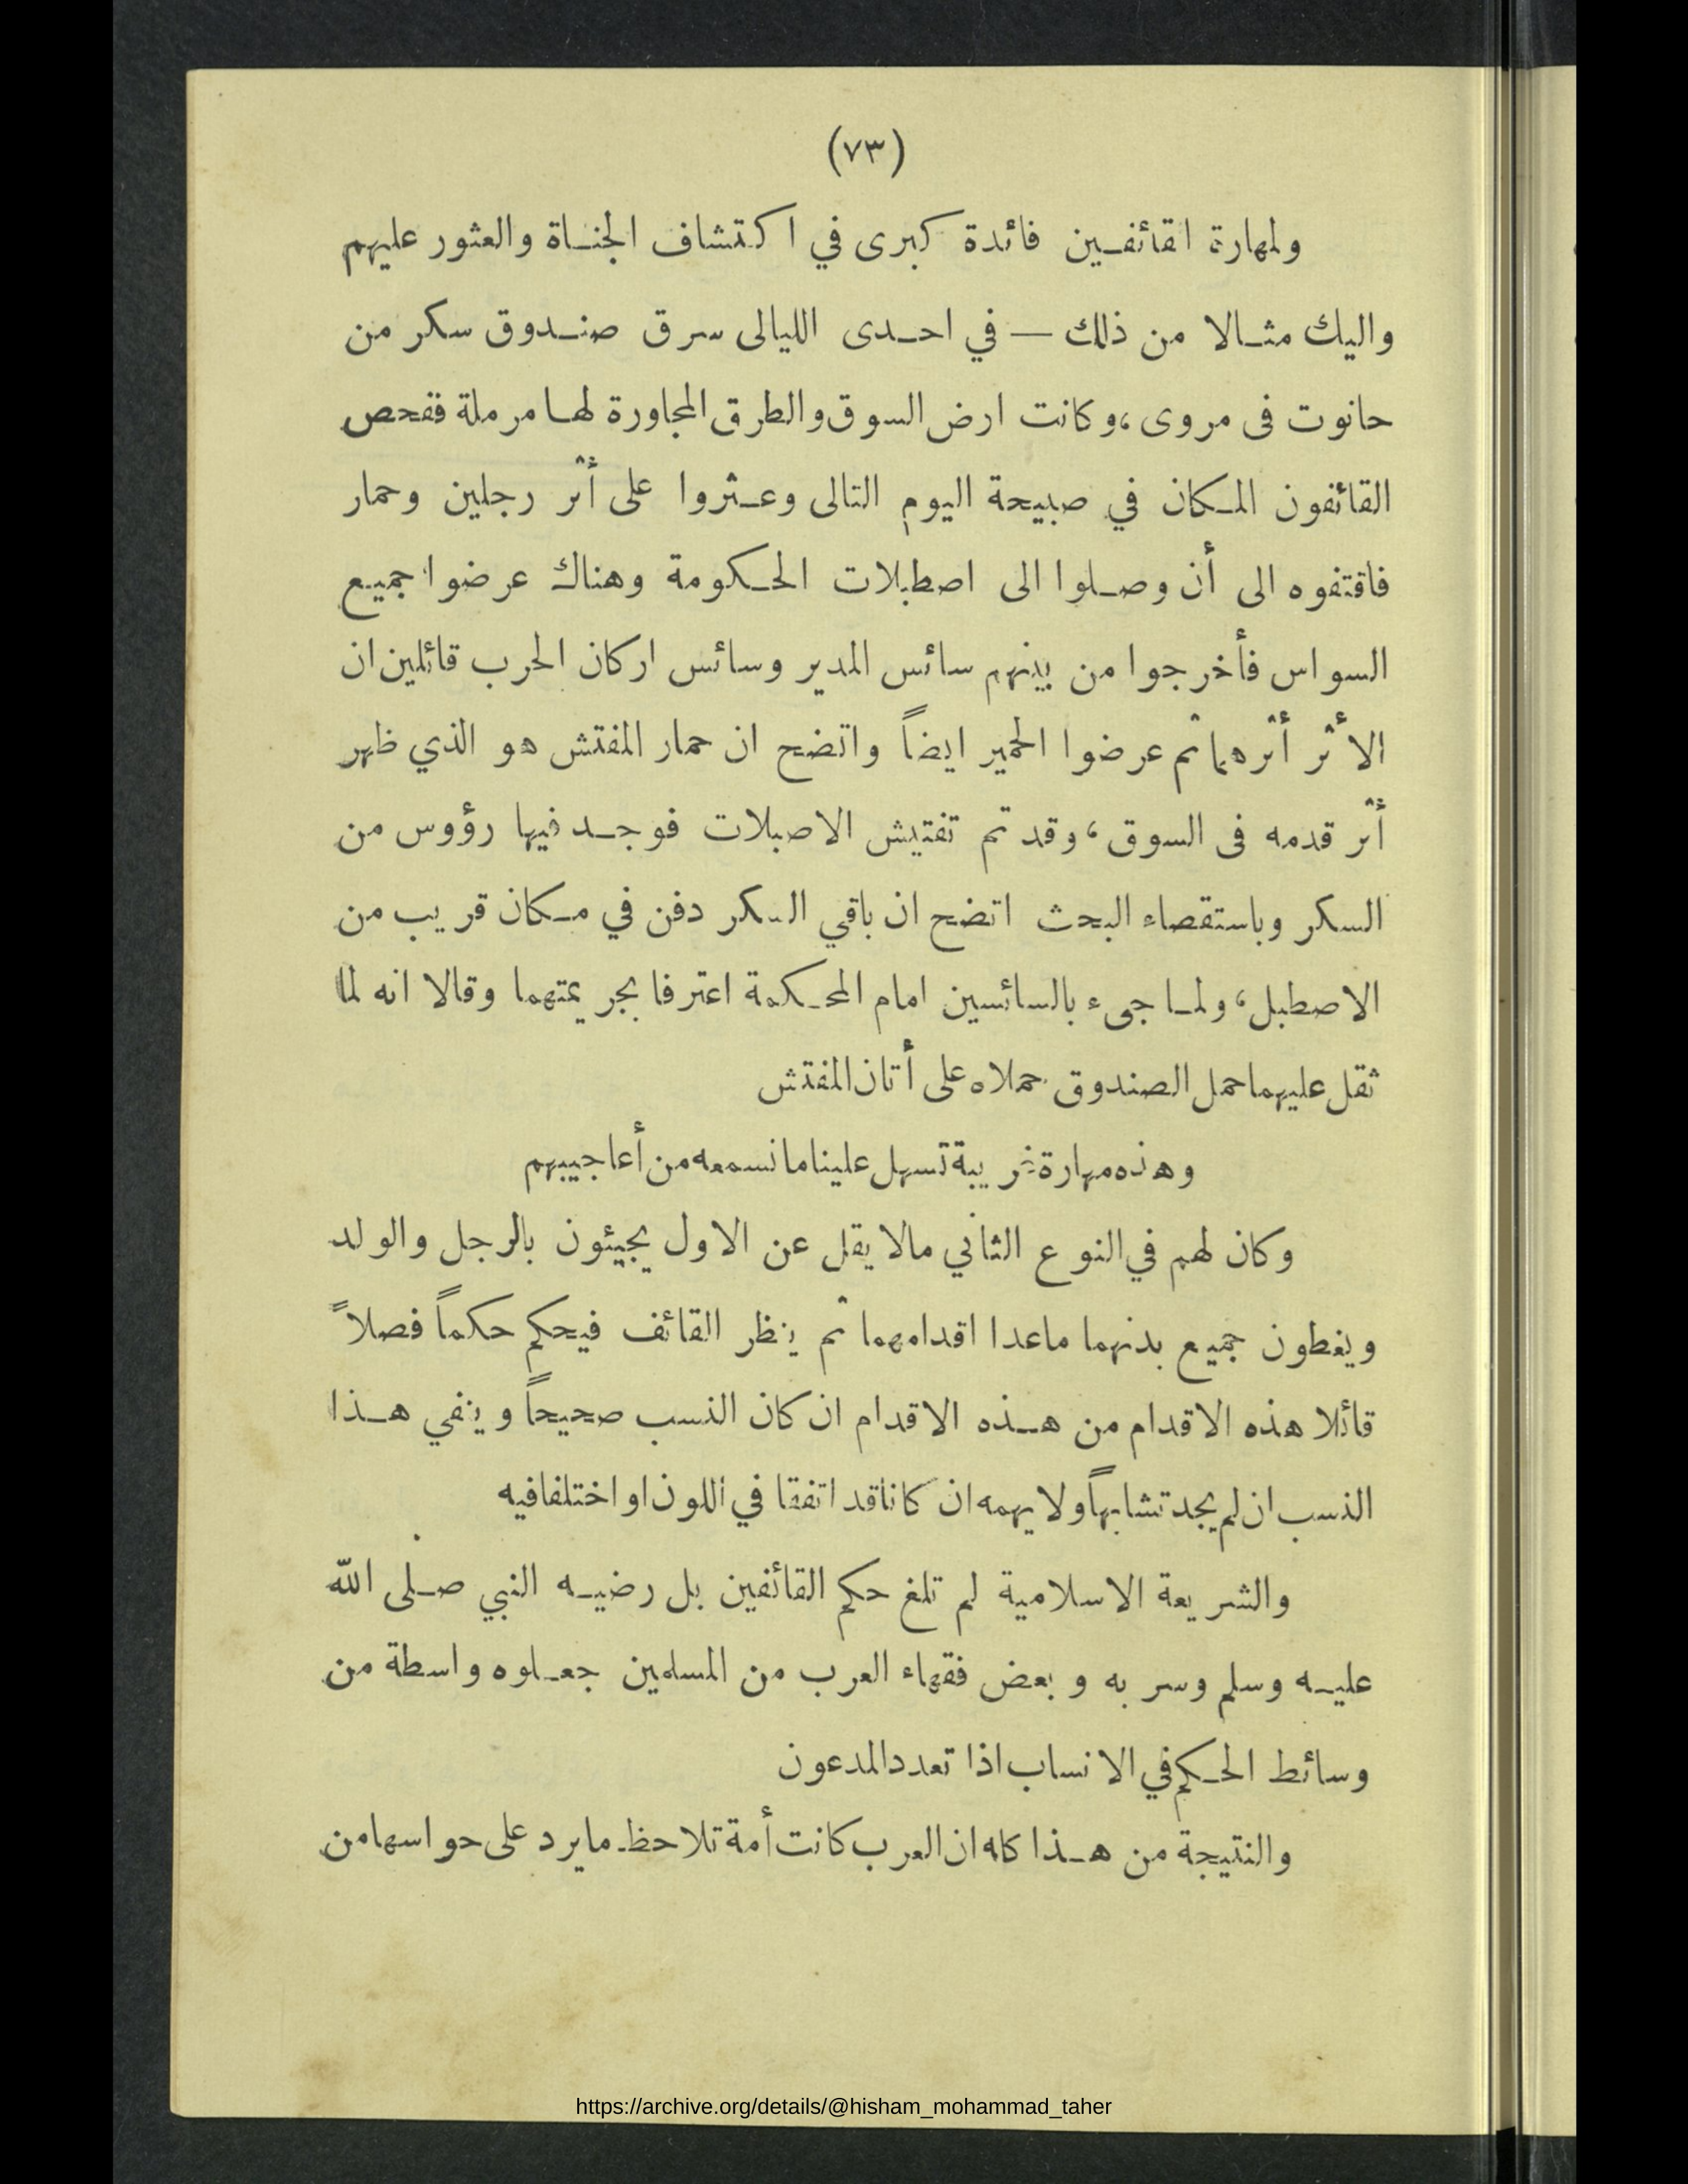 (٧٣)
ولمهارة القائفين فائدة كبرى في اكتشاف الجناة والعثور عليهم
واليك مثالا من ذلك — في احدى الليالى سرق صندوق سكر من
حانوت فى مروى، وكانت ارض السوق والطرق المجاورة لها مرملة ففحص
القائفون المكان في صبيحة اليوم التالى وعثروا على أثر رجلين وحمار
فاقتفوه الى أن وصلوا الى اصطبلات الحكومة وهناك عرضوا جميع
السواس فأخرجوا من بينهم سائس المدير وسائس اركان الحرب قائلين ان
الأثر أثرهما ثم عرضوا الحمير ايضاً واتضح ان حمار المفتش هو الذي ظهر
أثر قدمه فى السوق، وقد تم تفتيش الاصبلات فوجد فيها رؤوس من
السكر وباستقصاء البحث اتضح ان باقي السكر دفن في مكان قريب من
الاصطبل، ولما جىء بالسائسين امام المحكمة اعترفا بجريمتهما وقالا انه لما
ثقل عليهما حمل الصندوق حملاه على أتان المفتش
وهذه مهارة غريبة تسهل علينا ما نسمعه من أعاجيبهم
وكان لهم في النوع الثاني مالا يقل عن الاول يجيئون بالرجل والولد
ويغطون جميع بدنهما ماعدا اقدامهما ثم ينظر القائف فيحكم حكماً فصلاً
قائلا هذه الاقدام من هذه الاقدام ان كان النسب صحيحاً وينفي هذا
النسب ان لم يجد تشابهاً ولا يهمه ان كانا قد اتفقا في اللون او اختلفا فيه
والشريعة الاسلامية لم تلغ حكم القائفين بل رضيه النبي صلى الله
عليه وسلم وسر به وبعض فقهاء العرب من المسلمين جعلوه واسطة من
وسائط الحكم في الانساب اذا تعدد المدعون
والنتيجة من هذا كله ان العرب كانت أمة تلاحظ ما يرد على حواسها من
https://archive.org/details/@hisham_mohammad_taher